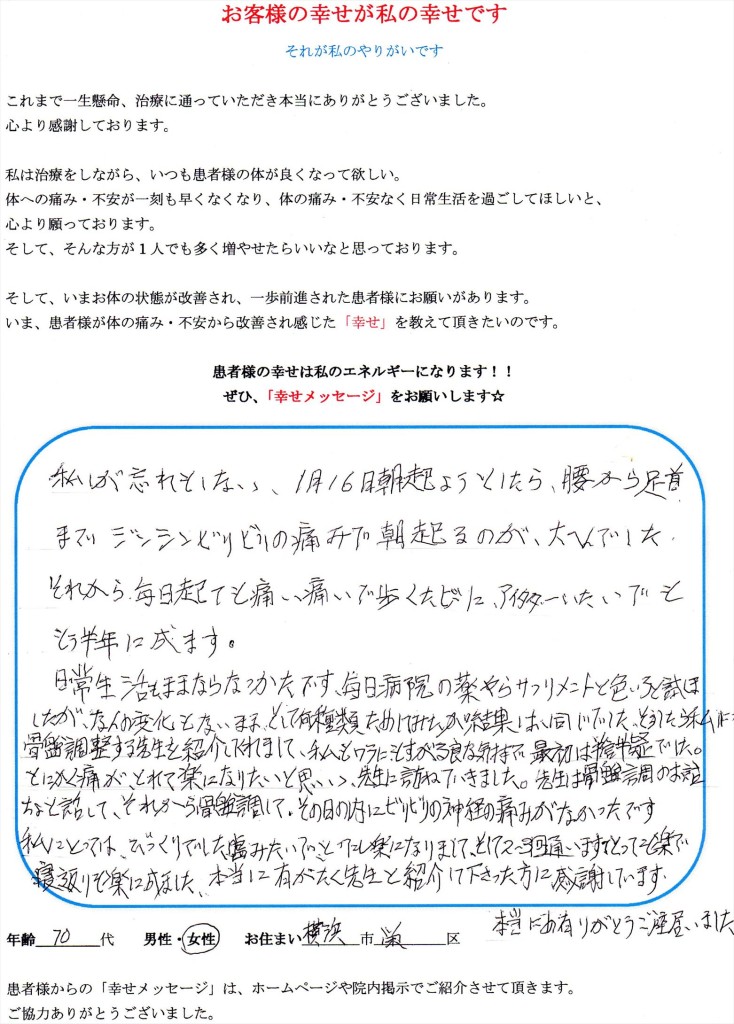 お客様の幸せが私の幸せです
それが私のやりがいです
これまで一生懸命、治療に通っていただき本当にありがとうございました。
心より感謝しております。
私は治療をしながら、いつも患者様の体が良くなって欲しい。
体への痛み・不安が一刻も早くなくなり、体の痛み・不安なく日常生活を過ごしてほしいと、
心より願っております。
そして、そんな方が1人でも多く増やせたらいいなと思っております。
そして、いまお体の状態が改善され、一歩前進された患者様にお願いがあります。
いま、患者様が体の痛み・不安から改善され感じた「幸せ」を教えて頂きたいのです。
患者様の幸せは私のエネルギーになります！！
ぜひ、「幸せメッセージ」をお願いします☆
私しが忘れもしない、1月16日朝起ようとしたら、腰から足首
まで ジンシンビリビリの痛みで朝起るのが、大へんでした
それから毎日起ても痛い痛いで歩くたびに、アイタターいたいでも
もう半年に成ます。
日常生活もままならなかったです、毎日病院の薬やらサプリメントと色いろと試ま
したが、なんの変化もないまま、
結果は、同じでした、
骨盤調整する先生を紹介してくれまして、私もワラにもすがる良な気持で 最初は半信半疑でした。
とにかく痛が、とれて楽になりたいと思いつ、先生に訪ねていきました。先生は骨盤調のお話
などと話して、それから骨盤調して、その日の内にビリビリの神経の痛みがなかったです
私にとっては、びっくりでした
楽になりまして、そして2〜3回通いますととっても楽で
寝返りも楽に成ました、本当に有がたく先生と紹介して下さった方に感謝しています
本当にあ有りがとうご座居いました
年齢 70 代 男性・女性 お住まい 横浜 市 栄 区
患者様からの「幸せメッセージ」は、ホームページや院内掲示でご紹介させて頂きます。
ご協力ありがとうございました。